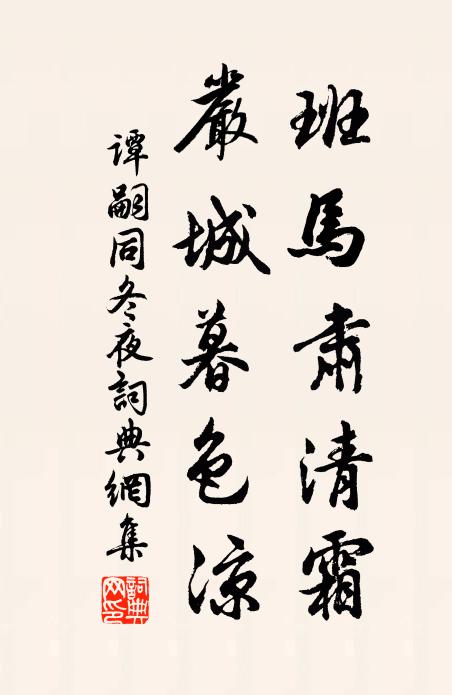 班馬肅清霜
嚴城暮色涼
譚嗣同冬夜詞典網集
詞典网印